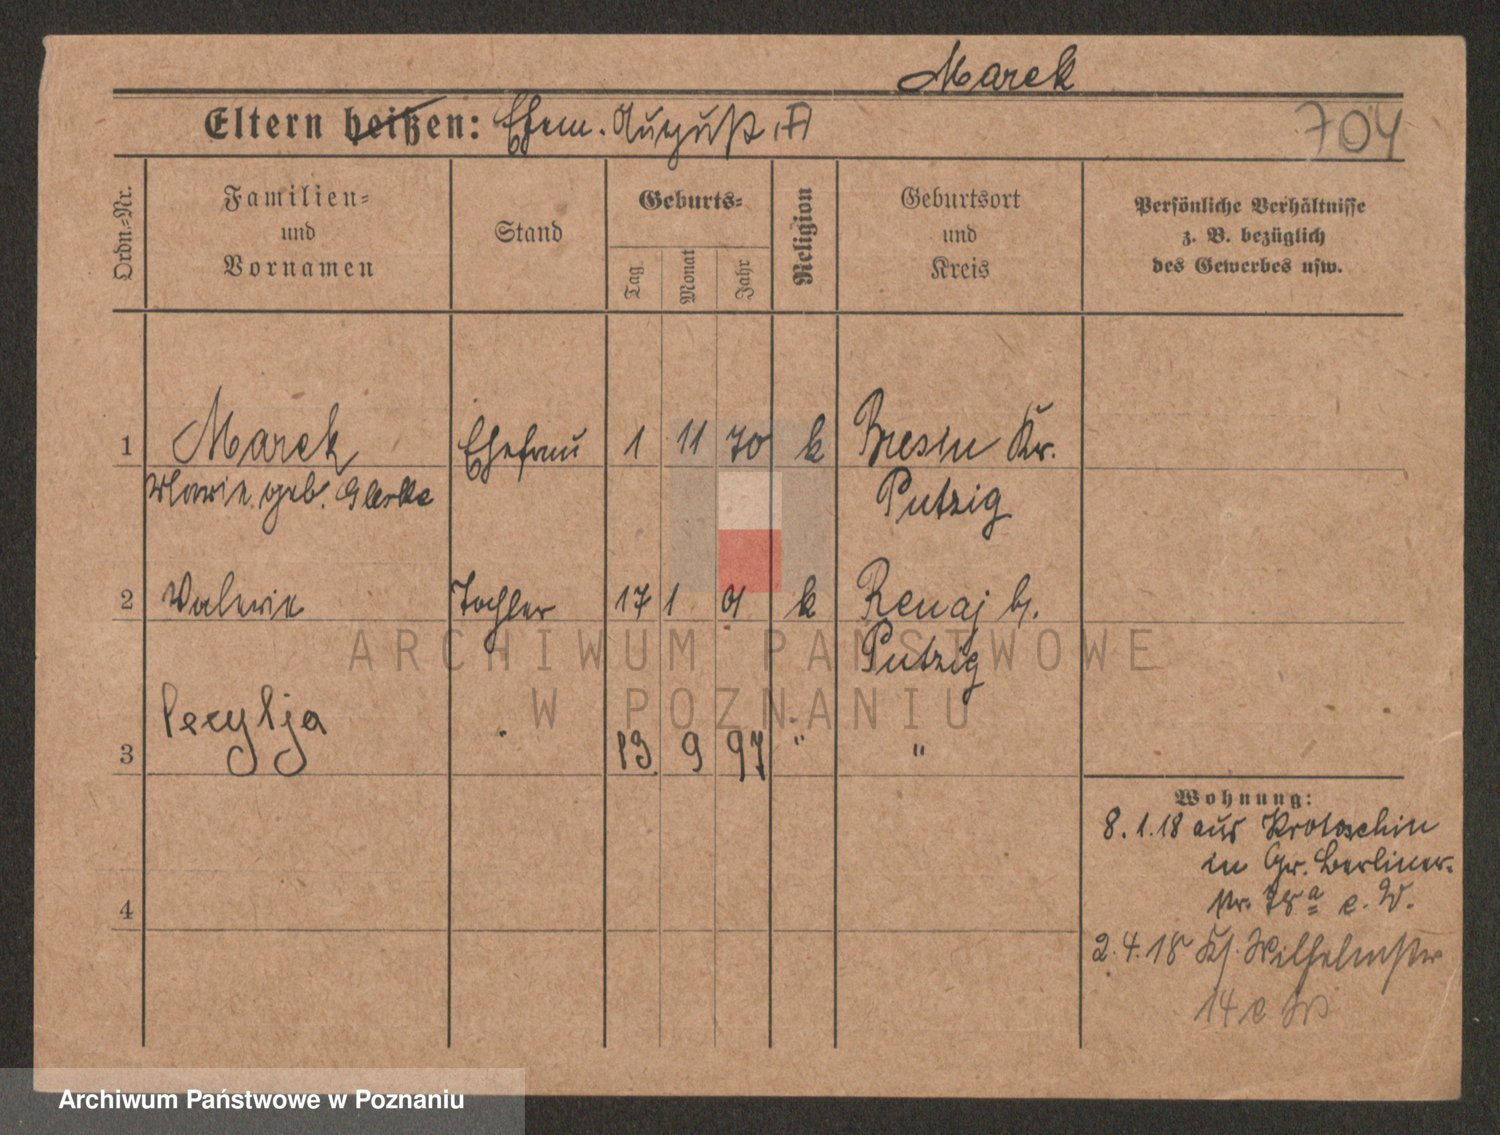 Marek
Eltern heißen: Ehem. August, A
704
Ordn.-Nr.
Familien-
und
Vornamen
Stand
Geburts-
Tag
Monat
Jahr
Religion
Geburtsort
und
Kreis
Persönliche Verhältnisse
z. B. bezüglich
des Gewerbes usw.
1 Marek Ehefrau 1 11 70 k Bresin Kr.
Marie geb. Putzig
2 Valerie Tochter 17 1 01 k Renaj b.
Putzig
3 Pecylja 19 9 97 " "
4
Wohnung:
8.1.18 aus Krotoschin
in Gr. Berliner-
str. 78a e. W.
2.4.18 Kl. Wilhelmstr
14 e W
ARCHIWUM PAŃSTWOWE
W POZNANIU
Archiwum Państwowe w Poznaniu